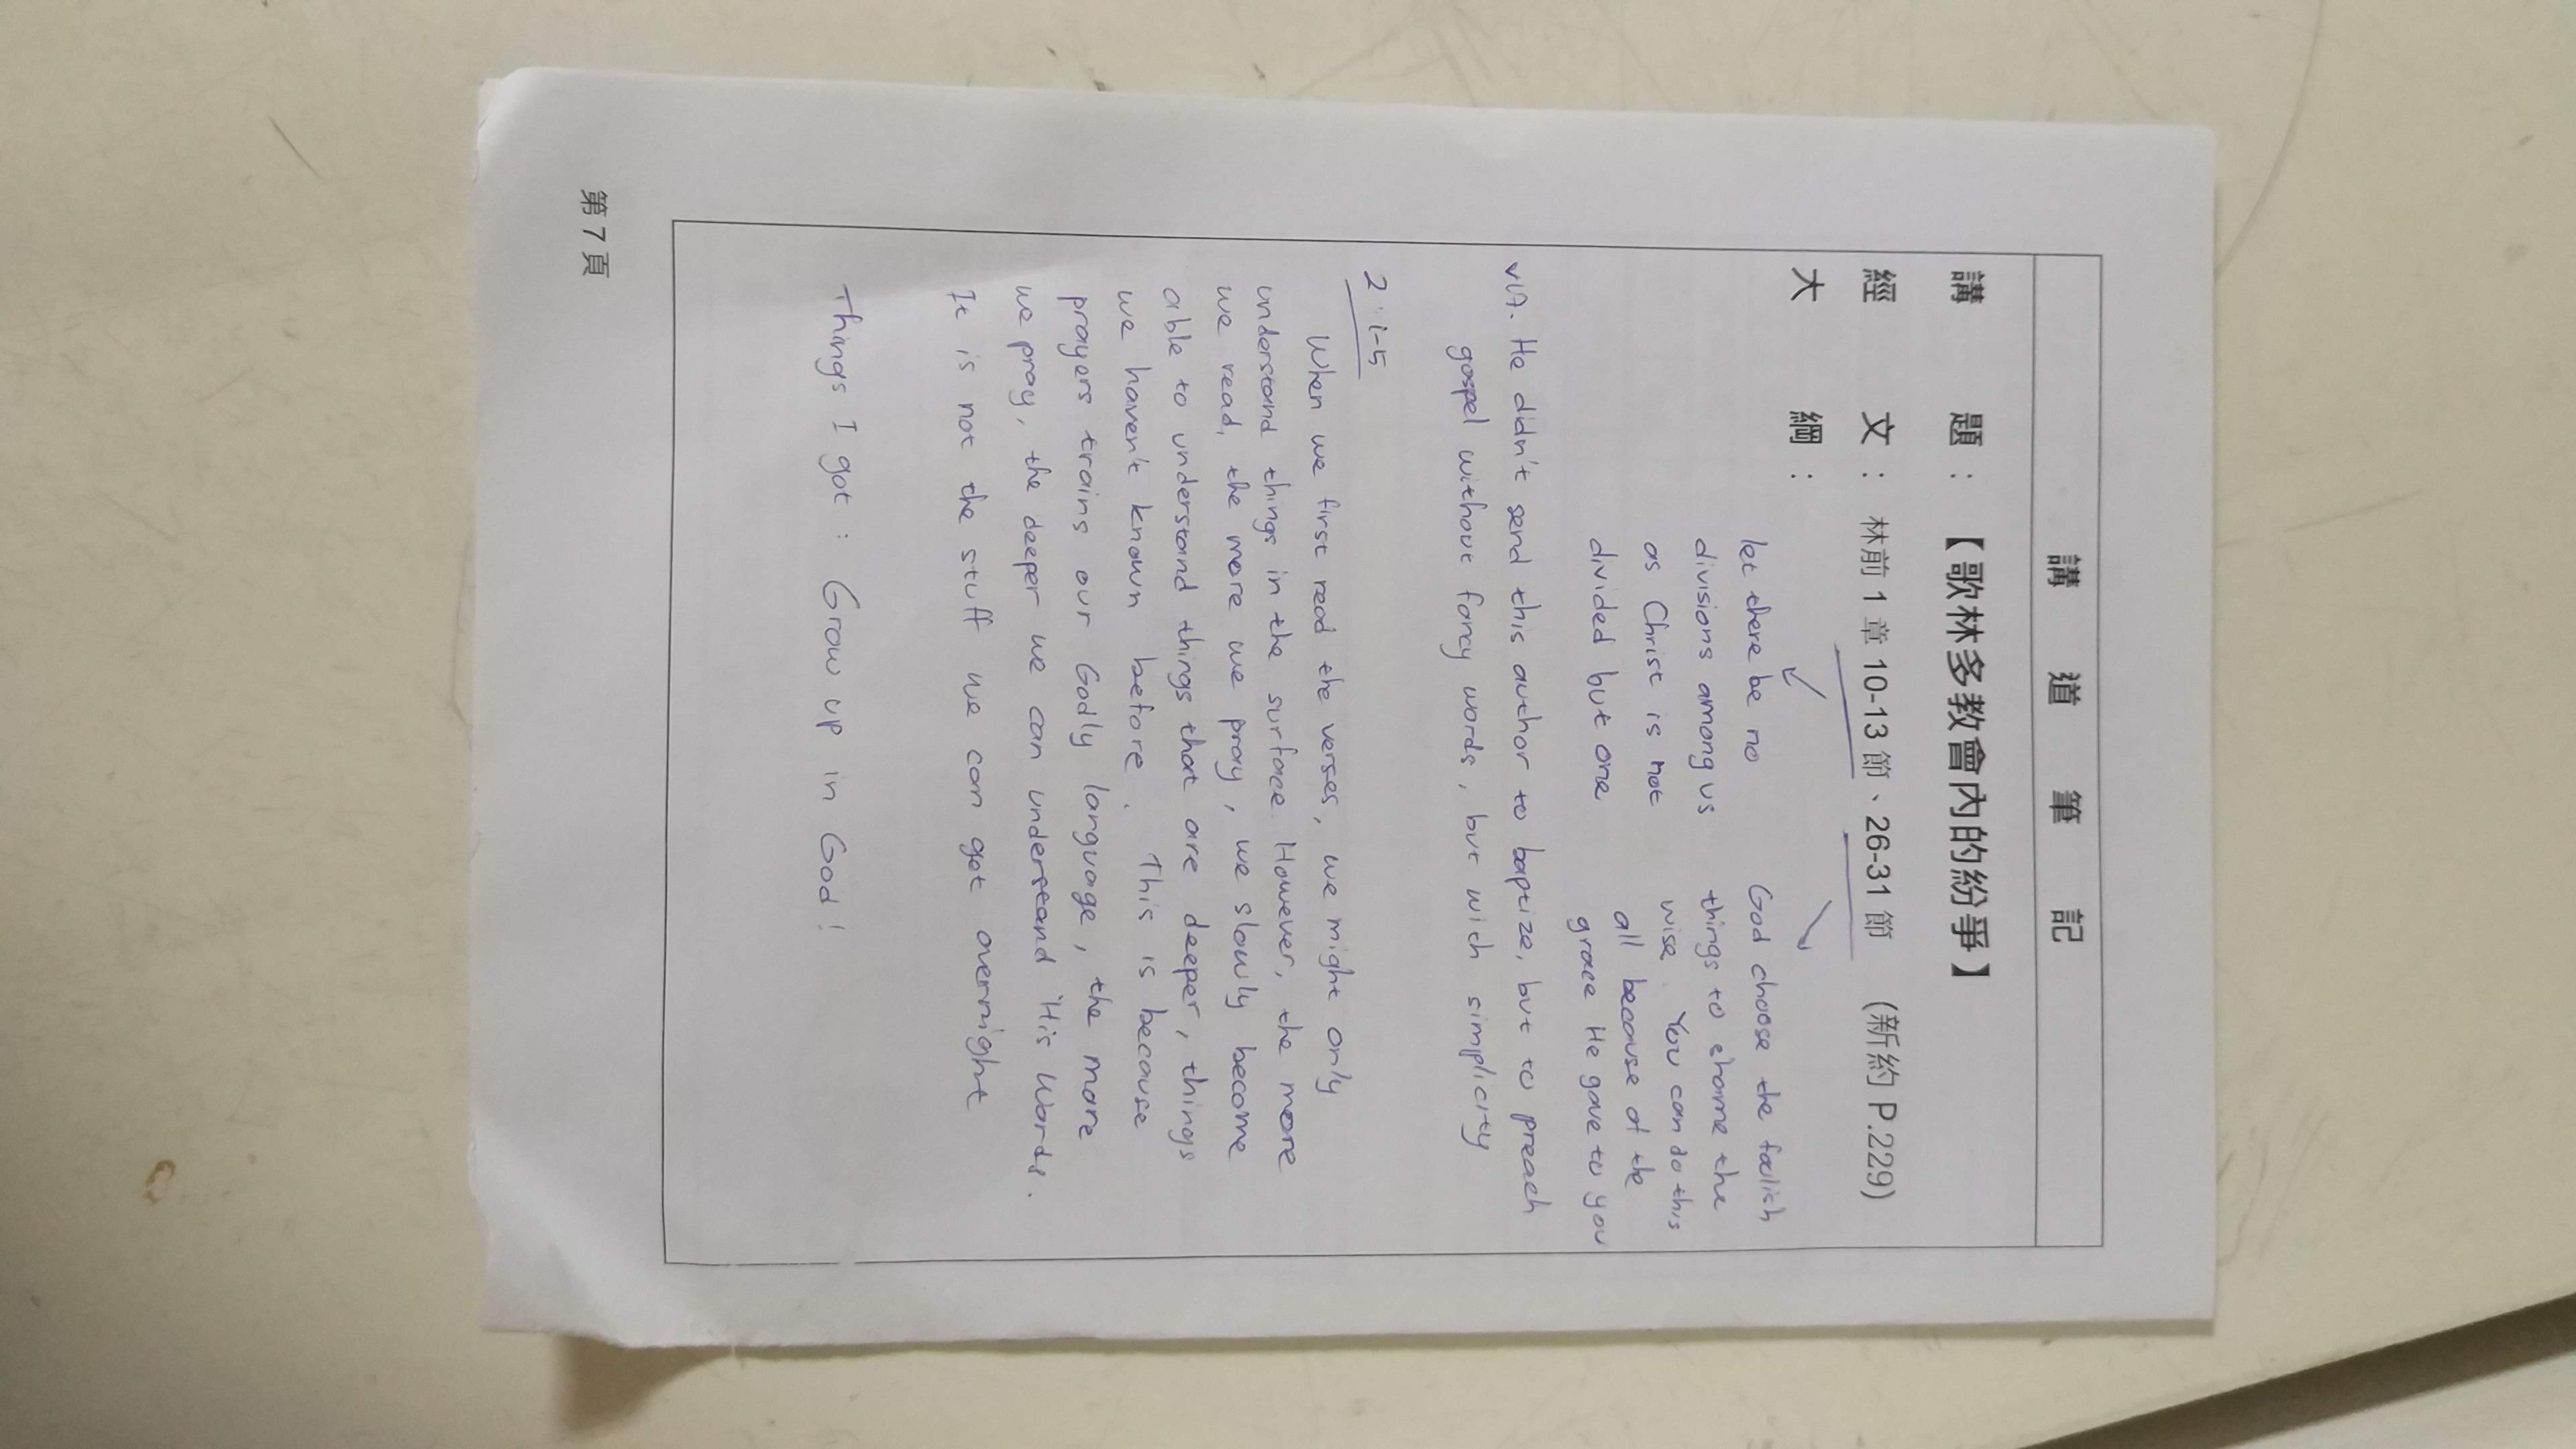 講道筆記
講題：【歌林多教會內的紛爭】
經文：林前 1 章 10-13 節、26-31 節 (新約 P.229)
大綱：
let there be no
divisions among us
as Christ is not
divided but one
God choose the foolish
things to shame the
wise. You can do this
all because of the
grace He gave to you
v17. He didn't send this author to baptize, but to preach
gospel without fancy words, but with simplicity
2:1-5
When we first read the verses, we might only
understand things in the surface. However, the more
we read, the more we pray, we slowly become
able to understand things that are deeper, things
we haven't known before. This is because
prayers trains our Godly language, the more
we pray, the deeper we can understand His Words.
It is not the stuff we can get overnight
Things I got: Grow up in God!
第 7 頁